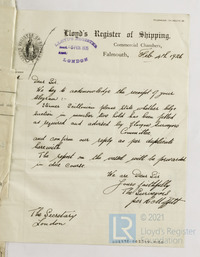 Lloyd's Register of Shipping,
Commercial Chambers,
Falmouth, Feb 4th 1926
LONDON
Dear Sir
We beg to acknowledge the receipt of your
telegram:-
in number two hold has been filled
as required and advised by Glasgow Surveyors
and confirm our reply as per duplicate
herewith
The report on the vessel will be forwarded
in due course
We are Dear Sir
Yours faithfully
The Surveyors
The Secretary
London
© 2021
Lloyd's Register
Foundation